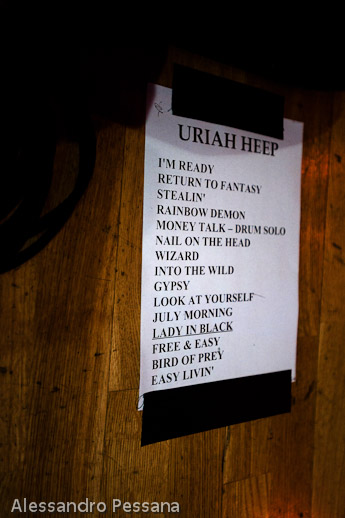 URIAH HEEP
I'M READY
RETURN TO FANTASY
STEALIN'
RAINBOW DEMON
MONEY TALK – DRUM SOLO
NAIL ON THE HEAD
WIZARD
INTO THE WILD
GYPSY
LOOK AT YOURSELF
JULY MORNING
LADY IN BLACK
FREE & EASY
BIRD OF PREY
EASY LIVIN'
Alessandro Pessana